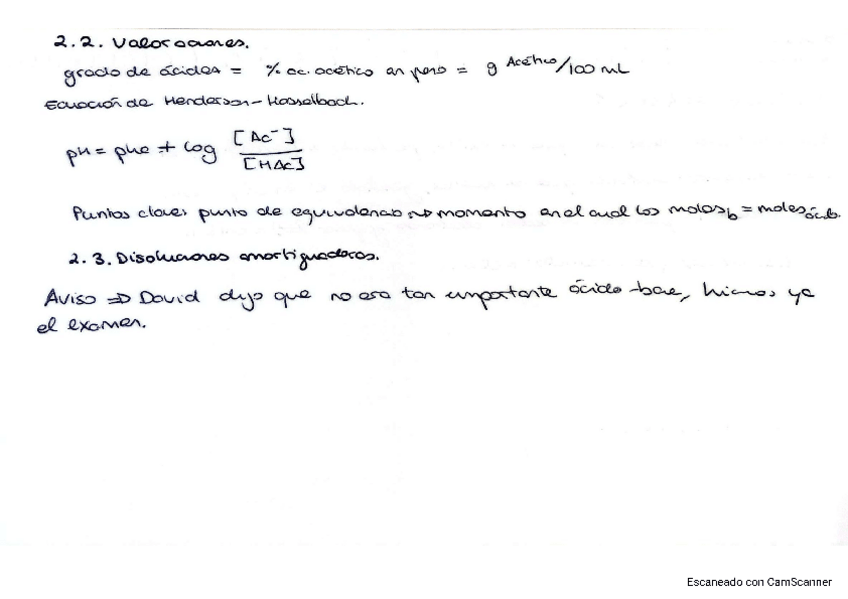 2.2. Valoraciones.
grado de ácidos = % ac. acético en peso = g Acético/100 mL
Ecuación de Henderson-Hasselbach.
pH = pka + log [Ac⁻]/[HAc]
Puntos clave, punto de equivalencia → momento en el cual los moles b = moles ácib.
2.3. Disoluciones amortiguadoras.
Aviso ⇒ David dijo que no era tan importante ácido-base, hicimos ya
el examen.
Escaneado con CamScanner